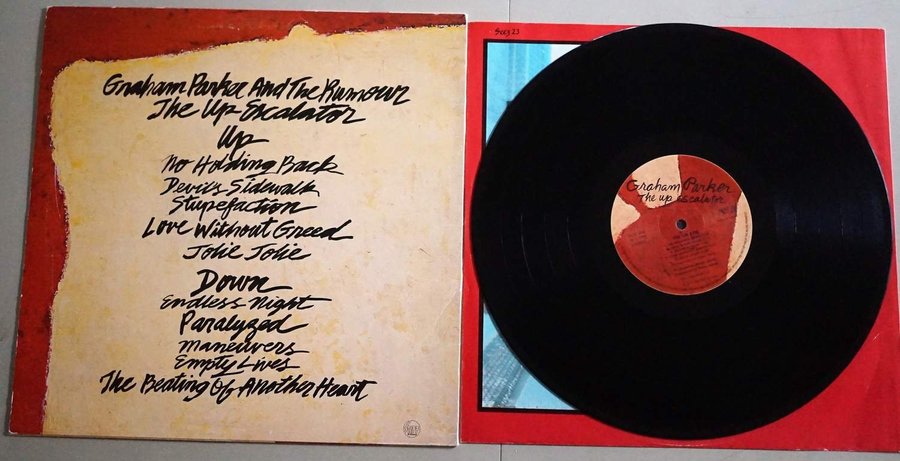 Graham Parker And The Rumour
The Up Escalator
Up
No Holding Back
Devil's Sidewalk
Stupefaction
Love Without Greed
Jolie Jolie
Down
Endless Night
Paralyzed
Maneuvers
Empty Lives
The Beating Of Another Heart
Seez 23
Graham Parker
The up escalator